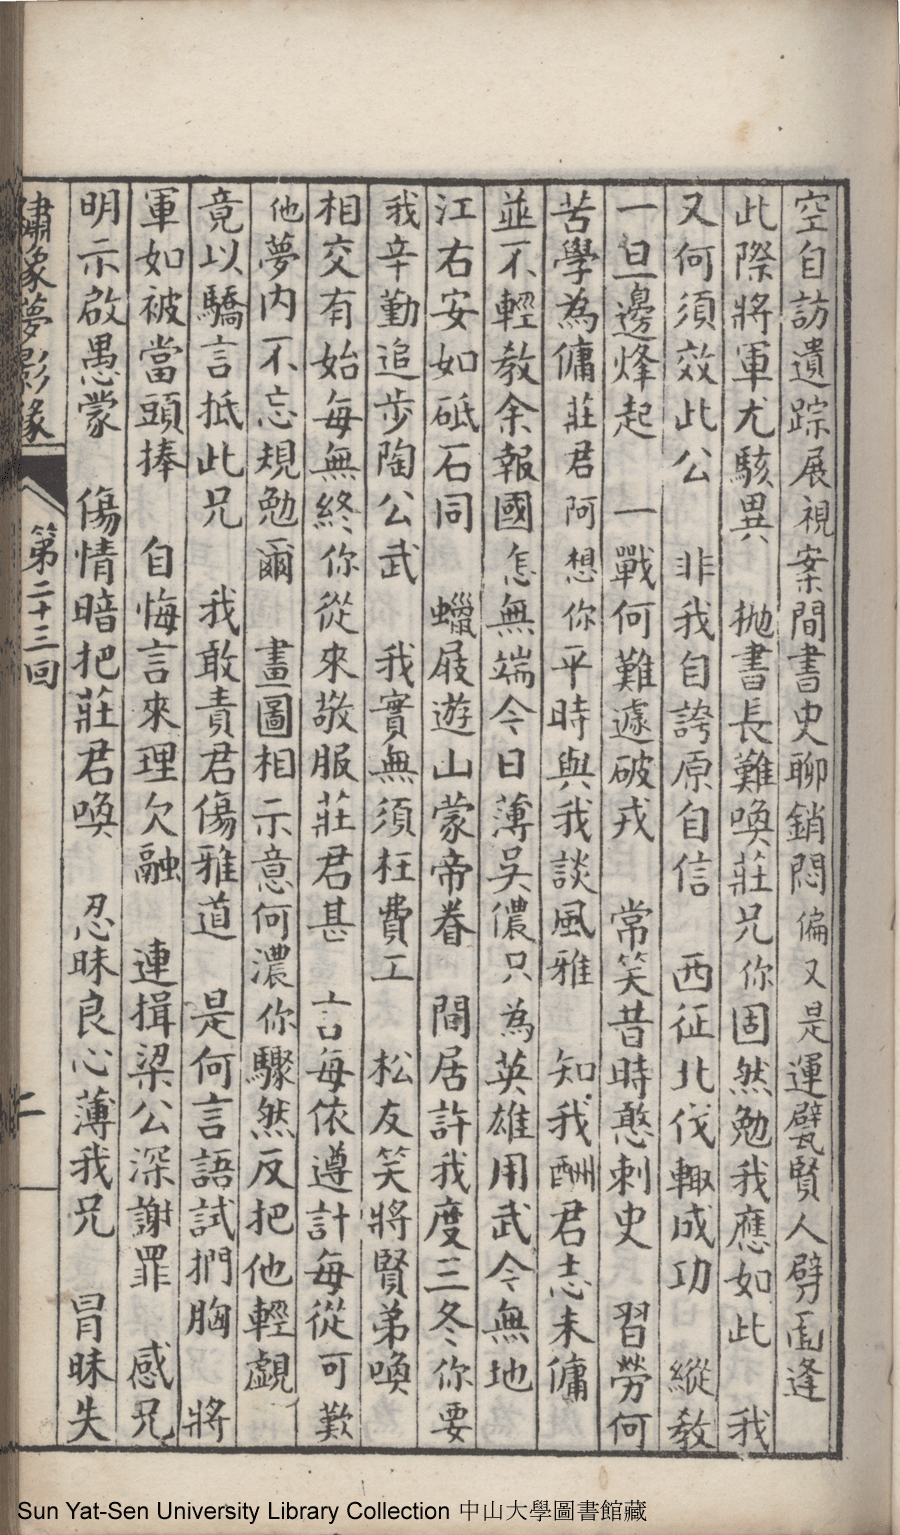 空自訪遺踪展視案間書史聊銷悶偏又是運甓賢人劈面逢
此際將軍尤駭異　拋書長難喚莊兄你固然勉我應如此　我
又何須效此公　非我自誇原自信　西征北伐輙成功　縱教
一旦邊烽起　一戰何難遽破戎　常笑昔時憨刺史　習勞何
苦學為傭莊君阿想你平時與我談風雅　知我酬君志未傭
並不輕教余報國怎無端今日薄吳儂只為英雄用武今無地
江右安如砥石同　蠟屐遊山蒙帝眷　間居許我度三冬你要
我辛勤追步陶公武　我實無須枉費工　松友笑將賢弟喚
相交有始每無終你從來敬服莊君甚　言每依遵計每從可歎
他夢內不忘規勉爾　畫圖相示意何濃你驟然反把他輕覷
竟以驕言抵此兄　我敢責君傷雅道　是何言語試捫胸　將
軍如被當頭捧　自悔言來理欠融　連揖梁公深謝罪　感兄
明示啟愚蒙　傷情暗把莊君喚　忍昧良心薄我兄　冒昧失
繡像夢影緣　第二十三回　二
Sun Yat-Sen University Library Collection 中山大學圖書館藏